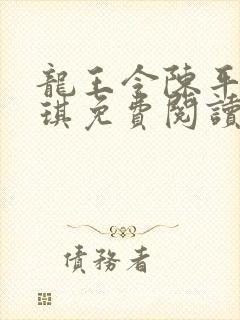 龍王令陳平
琪免費閱讀
債務者